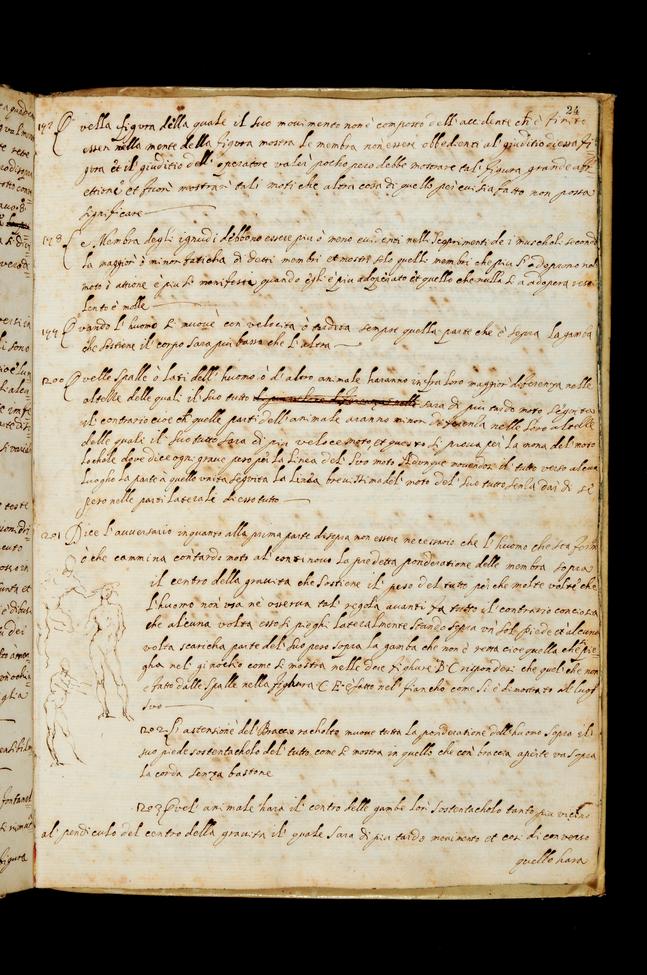 24
197 Quella figura della quale il suo movimento non è composto dell'accidente ch'è finito
esser nella mente della figura mostra le membra non essere obbedienti al giuditio di essa fi
gura et il giuditio dell'operatore valer pocho pero debbe mostrare tal figura grande afe
ctione et fuori mostrar tali moti che altra cosa di quello per cui sia fatto non possa
significare
198 Le Membra degli ignudi debbono essere piu ò meno euidenti nelli scoprimenti de i muscholi secondo
la maggior ò minor faticha di detti membri et mostri solo quelli membri che piu si adoprano nel
moto ò attione è piu si manifesta quando egli è piu adoperato et quello che nulla si adopera resta
lento è molle
199 Quando l'huomo si muoue con velocita ò tardita sempre quella parte che è sopra la gamba
che sostiene il corpo sara piu bassa che l'altra
200 Quelle spalle ò lati dell'huomo ò d'altro animale haranno infra loro maggior diferenza nelle
altezze delle quali il suo tutto sara di piu tardo moto seguita
il contrario cioe ch quelle parti dell'animale aranno minor diferenza nelle loro altezze
delle quali il suo tutto sara di piu veloce moto et questo si proua per la nona del moto
locale doue dice ogni graue pesa per la linea del suo moto Adunque mouendosi il tutto verso alcun
luogho la parte à quello unita seguita la linea breuissima del moto del suo tutto senza dar di se
peso nelle parti laterale di esso tutto
201 Dice l'auuersario inquanto alla prima parte di sopra non essere necessario che l'huomo che sta fermo
ò che cammina con tardo moto al continouo la predetta ponderatione delle membra sopra
il centro della grauita che sostiene il peso del tutto perche molte volte che
l'huomo non usa nè osserua tal regola auanti fa tutto il contrario concio sia
che alcuna volta esso si pieghi lateralmente stando sopra vn sol piede et alcuna
volta scaricha parte del suo peso sopra la gamba che non è retta cioe quella che si pie
gha nel ginocchio come si mostra nelle due fighure B C rispondesi che quel che non
è fatto dalle spalle nella fighura C E è fatto nel fiancho come si è dimostrato al luogho
suo
202 L'astensione del Braccio racholto muoue tutta la ponderatione dell'huomo sopra il
suo piede sostentacholo del tutto come si mostra in quello che con braccia aperte va sopra
la corda senza bastone
203 Quel animale hara il centro delle gambe lor sostentacholo tanto piu vicino
al pendiculo del centro della grauita il quale sara di piu tardo mouimento et cosi di conuerso
quello hara